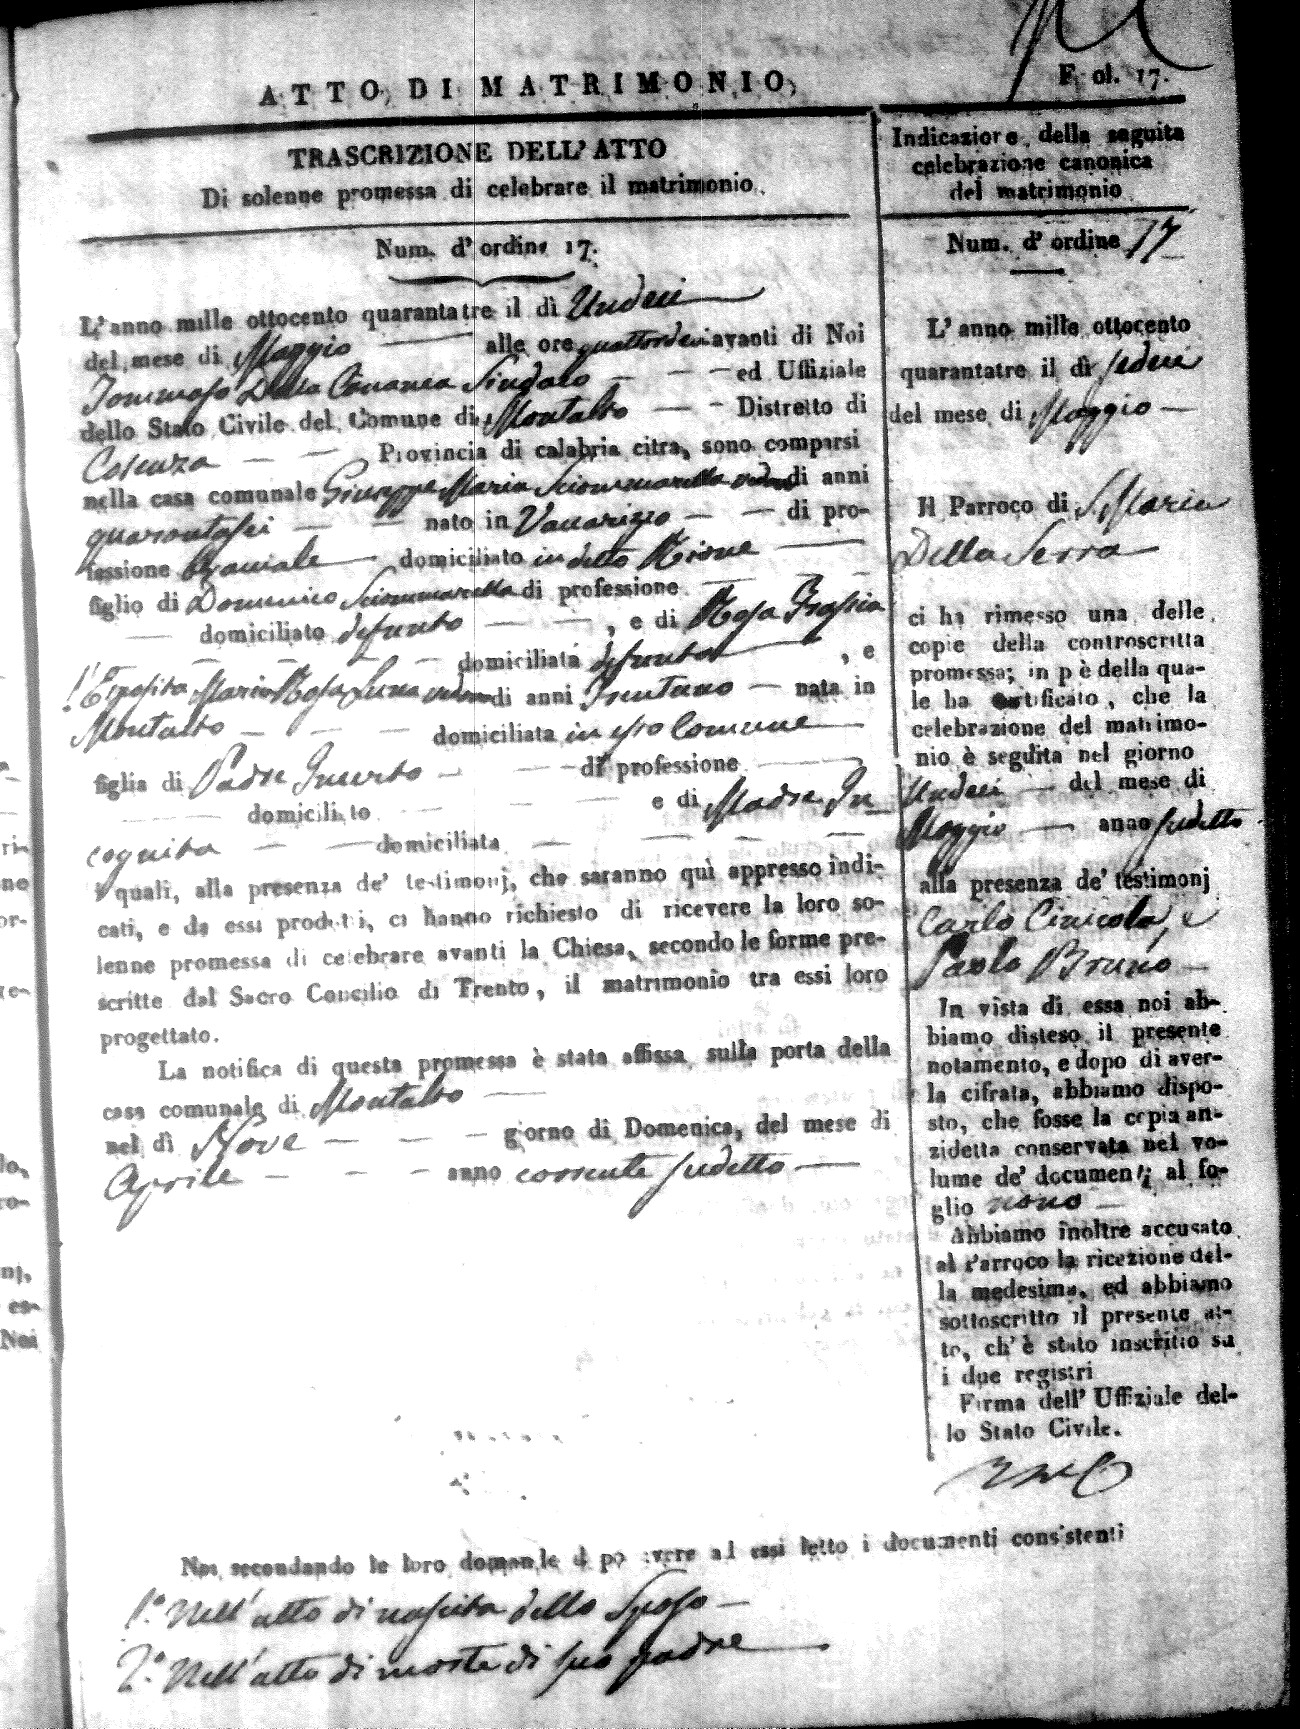 ATTO DI MATRIMONIO,
F. ol. 17.
TRASCRIZIONE DELL' ATTO
Di solenne promessa di celebrare il matrimonio.
Num. d' ordine 17.
L' anno mille ottocento quarantatre il dì Undeci
del mese di Maggio alle ore quattordeci avanti di Noi
Tommaso Della Sindaco ed Uffiziale
dello Stato Civile del Comune di Montalto Distretto di
Cosenza Provincia di calabria citra, sono comparsi
nella casa comunale Giuseppe Maria Sciommarella vedovo di anni
quarantasei nato in Vaccarizzo di pro-
fessione braciale domiciliato in detto Rione
figlio di Domenico Sciommarella di professione
domiciliato defunto , e di Rosa
domiciliata defunta , e
l'Esposita Maria Rosa Luna vedova di anni Trentuno nata in
Montalto domiciliata in esso Comune
figlia di Padre Incerto di professione
domiciliato e di Madre In
cognita domiciliata
i quali, alla presenza de' testimonj, che saranno quì appresso indi-
cati, e da essi prodotti, ci hanno richiesto di ricevere la loro so-
lenne promessa di celebrare avanti la Chiesa, secondo le forme pre-
scritte dal Sacro Concilio di Trento, il matrimonio tra essi loro
progettato.
La notifica di questa promessa è stata affissa sulla porta della
casa comunale di Montalto
nel dì Nove giorno di Domenica, del mese di
Aprile anno corrente sudetto
Indicazione della seguita
celebrazione canonica
del matrimonio
Num. d' ordine 17
L' anno mille ottocento
quarantatre il dì sedeci
del mese di Maggio
Il Parroco di S. Maria
Della Serra
ci ha rimesso una delle
copie della controscritta
promessa; in piè della qua-
le ha certificato, che la
celebrazione del matrimo-
nio è seguita nel giorno
Undeci del mese di
Maggio anno sudetto
alla presenza de' testimonj
Carlo e
Paolo Bruno
In vista di essa noi ab-
biamo disteso il presente
notamento, e dopo di aver-
la cifrata, abbiamo dispo-
sto, che fosse la copia an-
zidetta conservata nel vo-
lume de' documenti al fo-
glio nono
Abbiamo inoltre accusato
al Parroco la ricezione del-
la medesima, ed abbiamo
sottoscritto il presente at-
to, ch' è stato inscritto su
i due registri
Firma dell' Uffiziale del-
lo Stato Civile.
Noi secondando le loro domande dopo avere ad essi letto i documenti consistenti
1.° Nell'atto di nascita dello Sposo
2.° Nell'atto di morte di suo padre